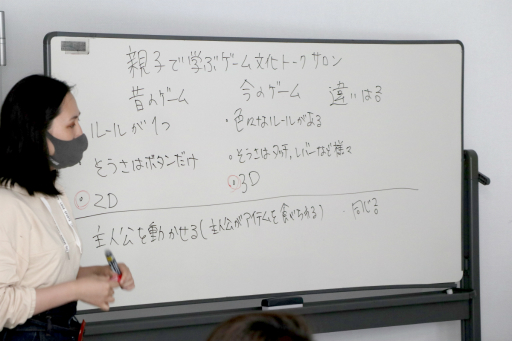 親子で学ぶゲーム文化トークサロン
昔のゲーム 今のゲーム 違いはる
ルールが1つ ・色々なルールがある
そうさはボタンだけ ・そうさはタッチ、レバーなど様々
2D ・3D
主人公を動かせる(主人公がアイテムを食べられる) ・同じる